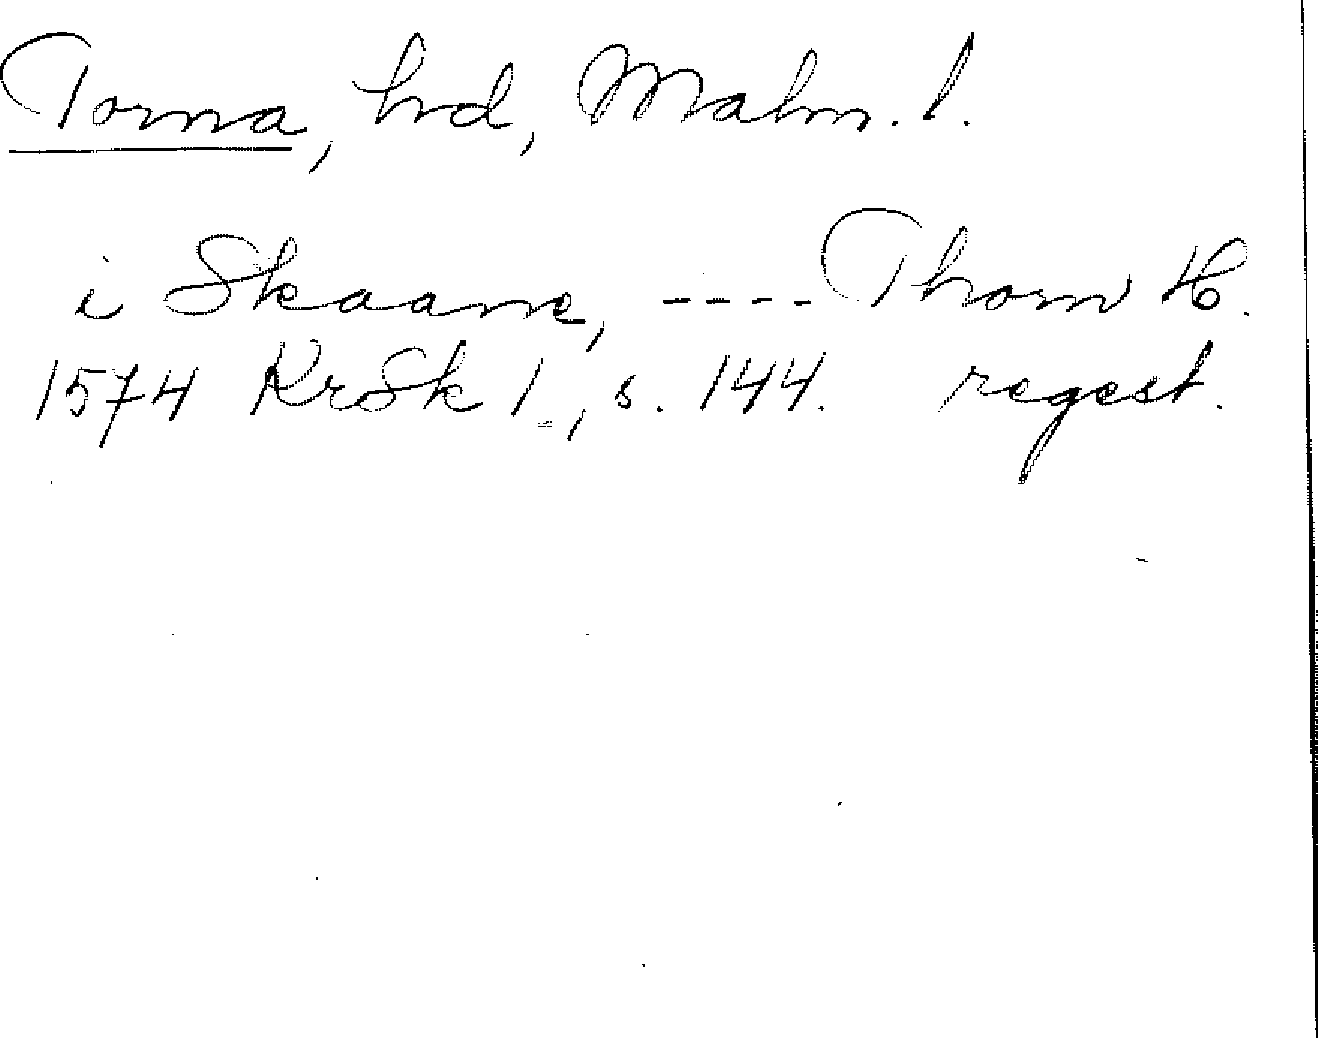 Torna, hd, Malm. l.
i Skaane, ---- Thorn H.
1574 KrSk 1, s. 144. regest.